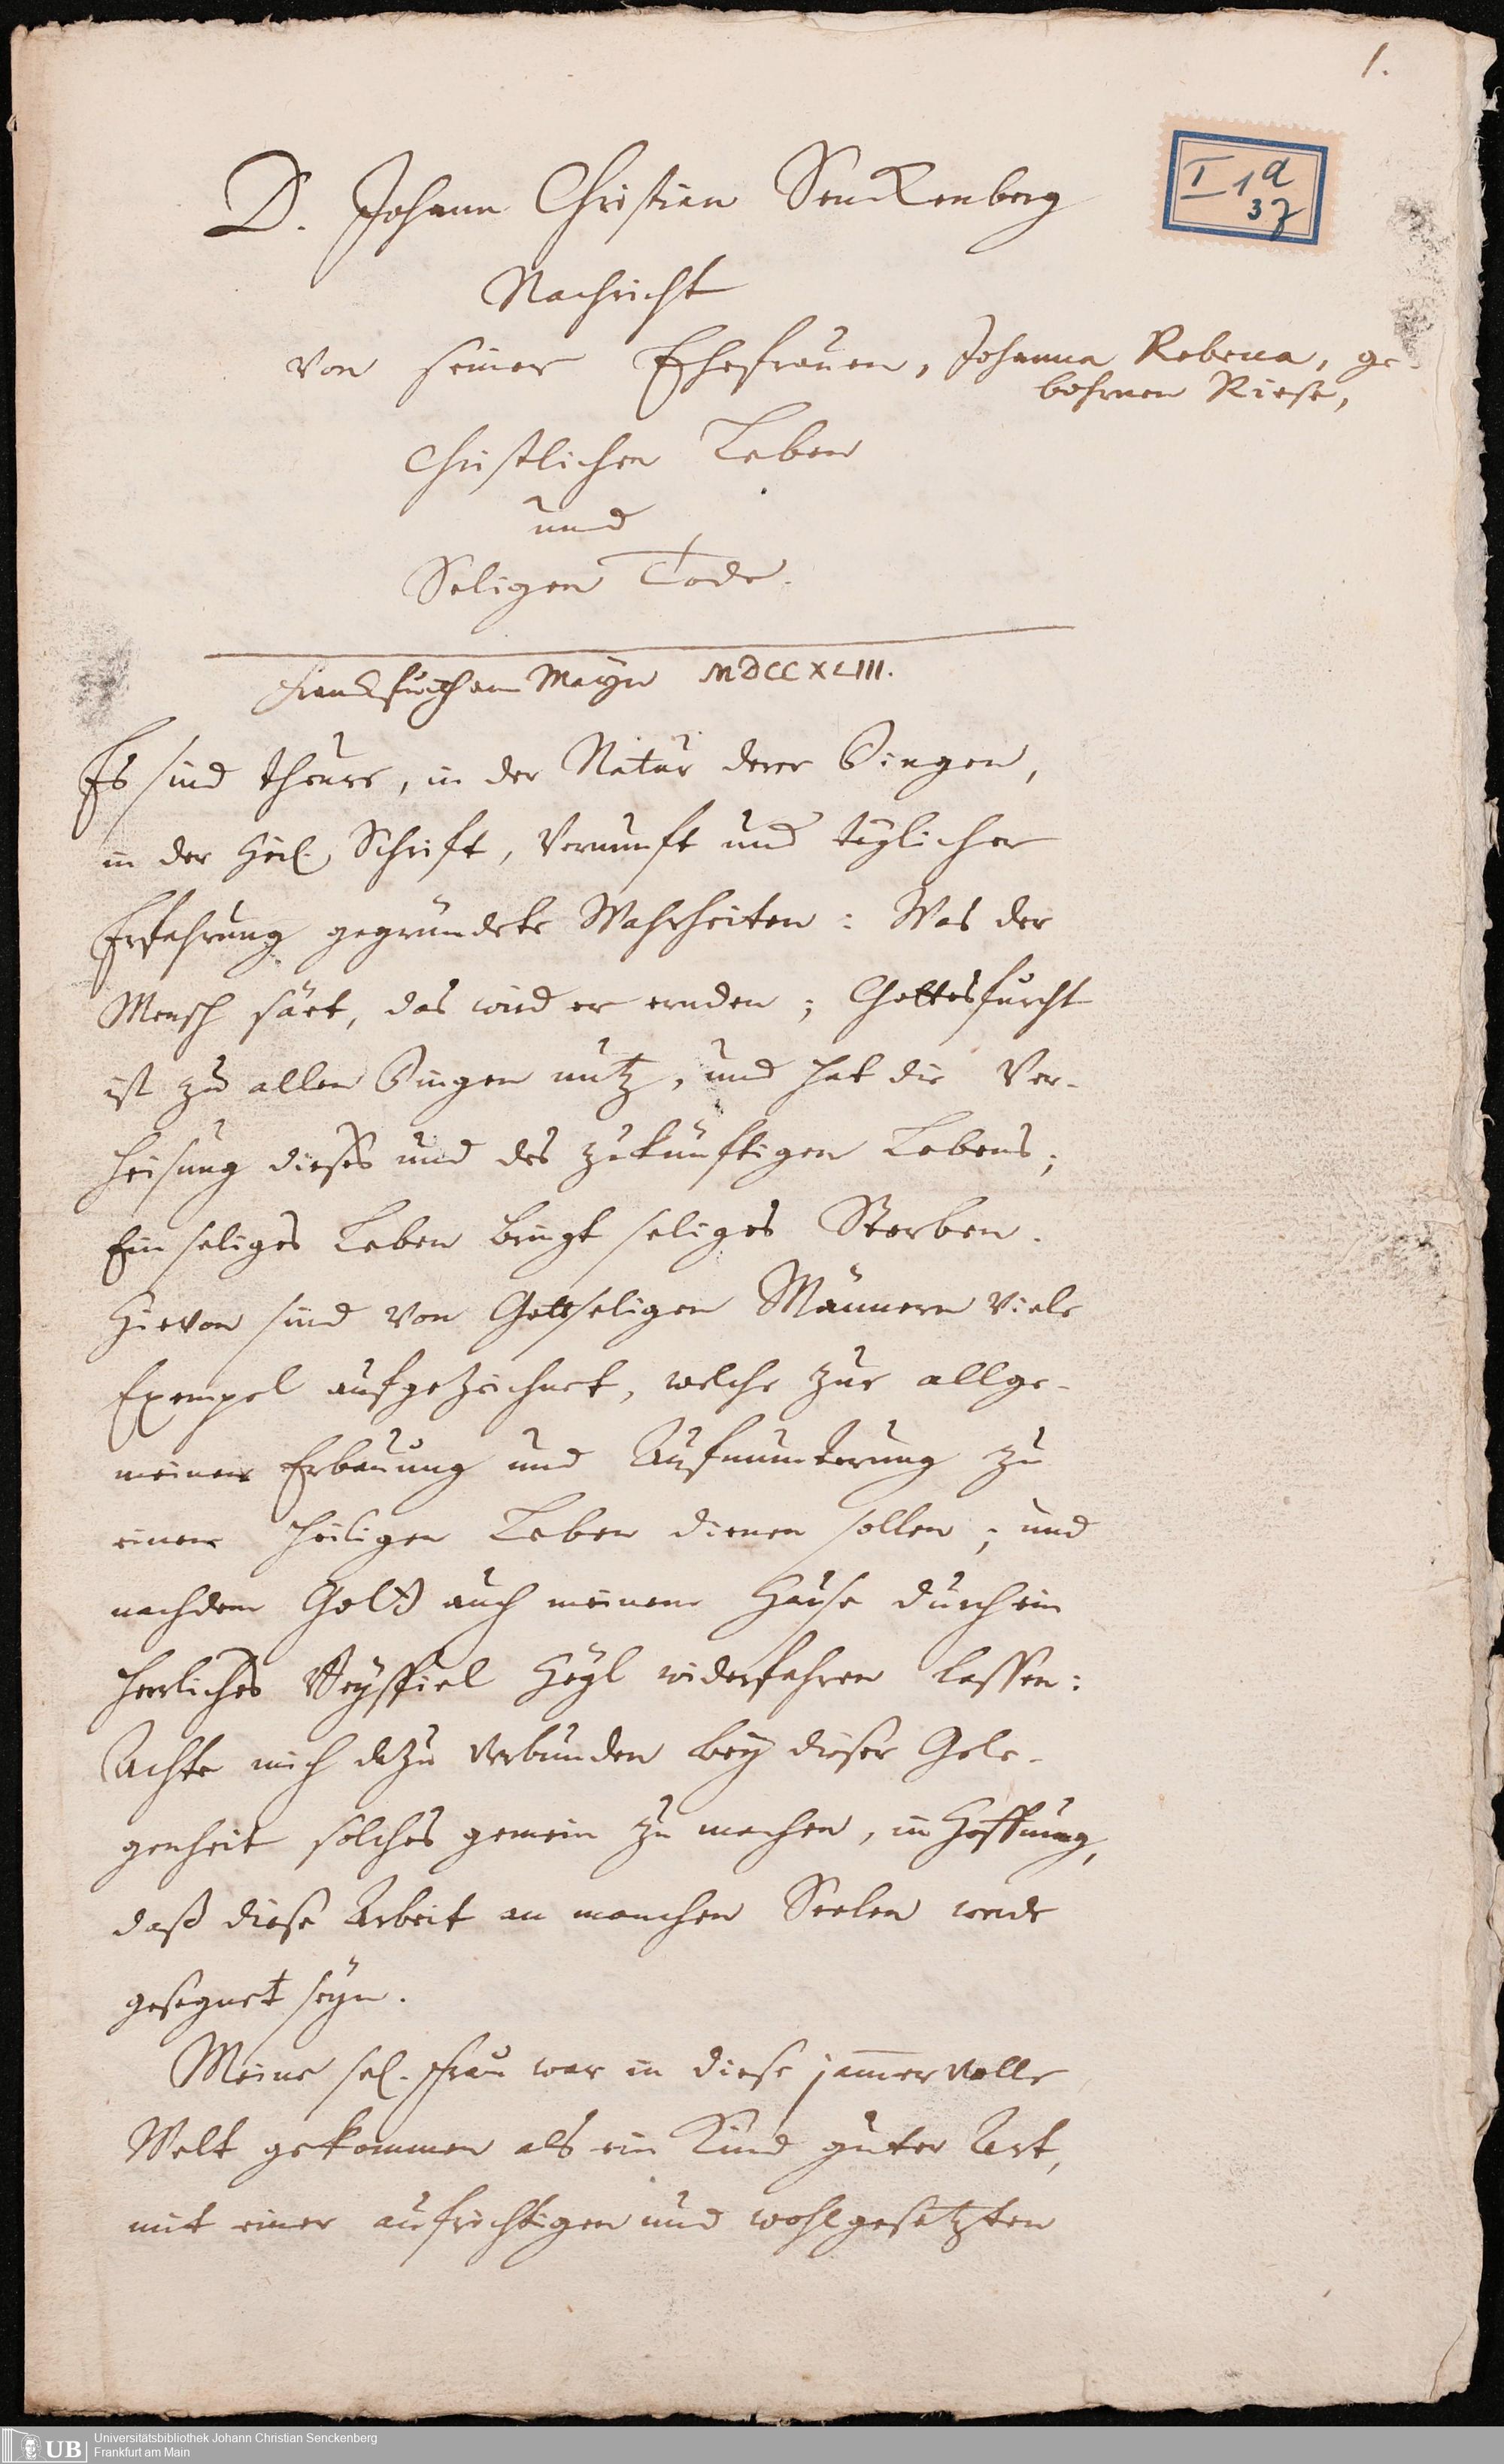 1.
I 1 a
37
D. Johann Christian Senckenberg
Nachricht
von seiner Ehefrauen, Johanna Rebecca, ge-
bohrnen Riese,
Christlichen Leben
und
Seligen Tode.
Franckfurth am Mayn MDCCXLIII.
Es sind theure, in der Natur derer Dingen,
in der Heil. Schrifft, Vernunfft und täglicher
Erfahrung gegründete Wahrheiten: Was der
Mensch säet, das wird er ernden; Gottesfurcht
ist zu allen Dingen nutz, und hat die Ver-
heisung dieses und des zukünfftigen Lebens;
Ein seliges Leben bringt seliges Sterben.
Hievon sind von Gottseligen Männern viele
Exempel aufgezeichnet, welche zur allge-
meinen Erbauung und Aufmunterung zu
einem heiligen Leben dienen sollen; und
nachdem Gott auch meinem Hause durch ein
herrliches Beyspiel Heyl widerfahren lassen:
Achte mich dazu verbunden bey dieser Gele-
genheit solches gemein zu machen, in Hoffnung,
daß diese Arbeit an manchen Seelen werde
gesegnet seyn.
Meine sel. Frau war in diese jam̅ervolle
Welt gekommen als ein Kind guter Art,
mit einer aufrichtigen und wohlgesetzten
UB
Universitätsbibliothek Johann Christian Senckenberg
Frankfurt am Main